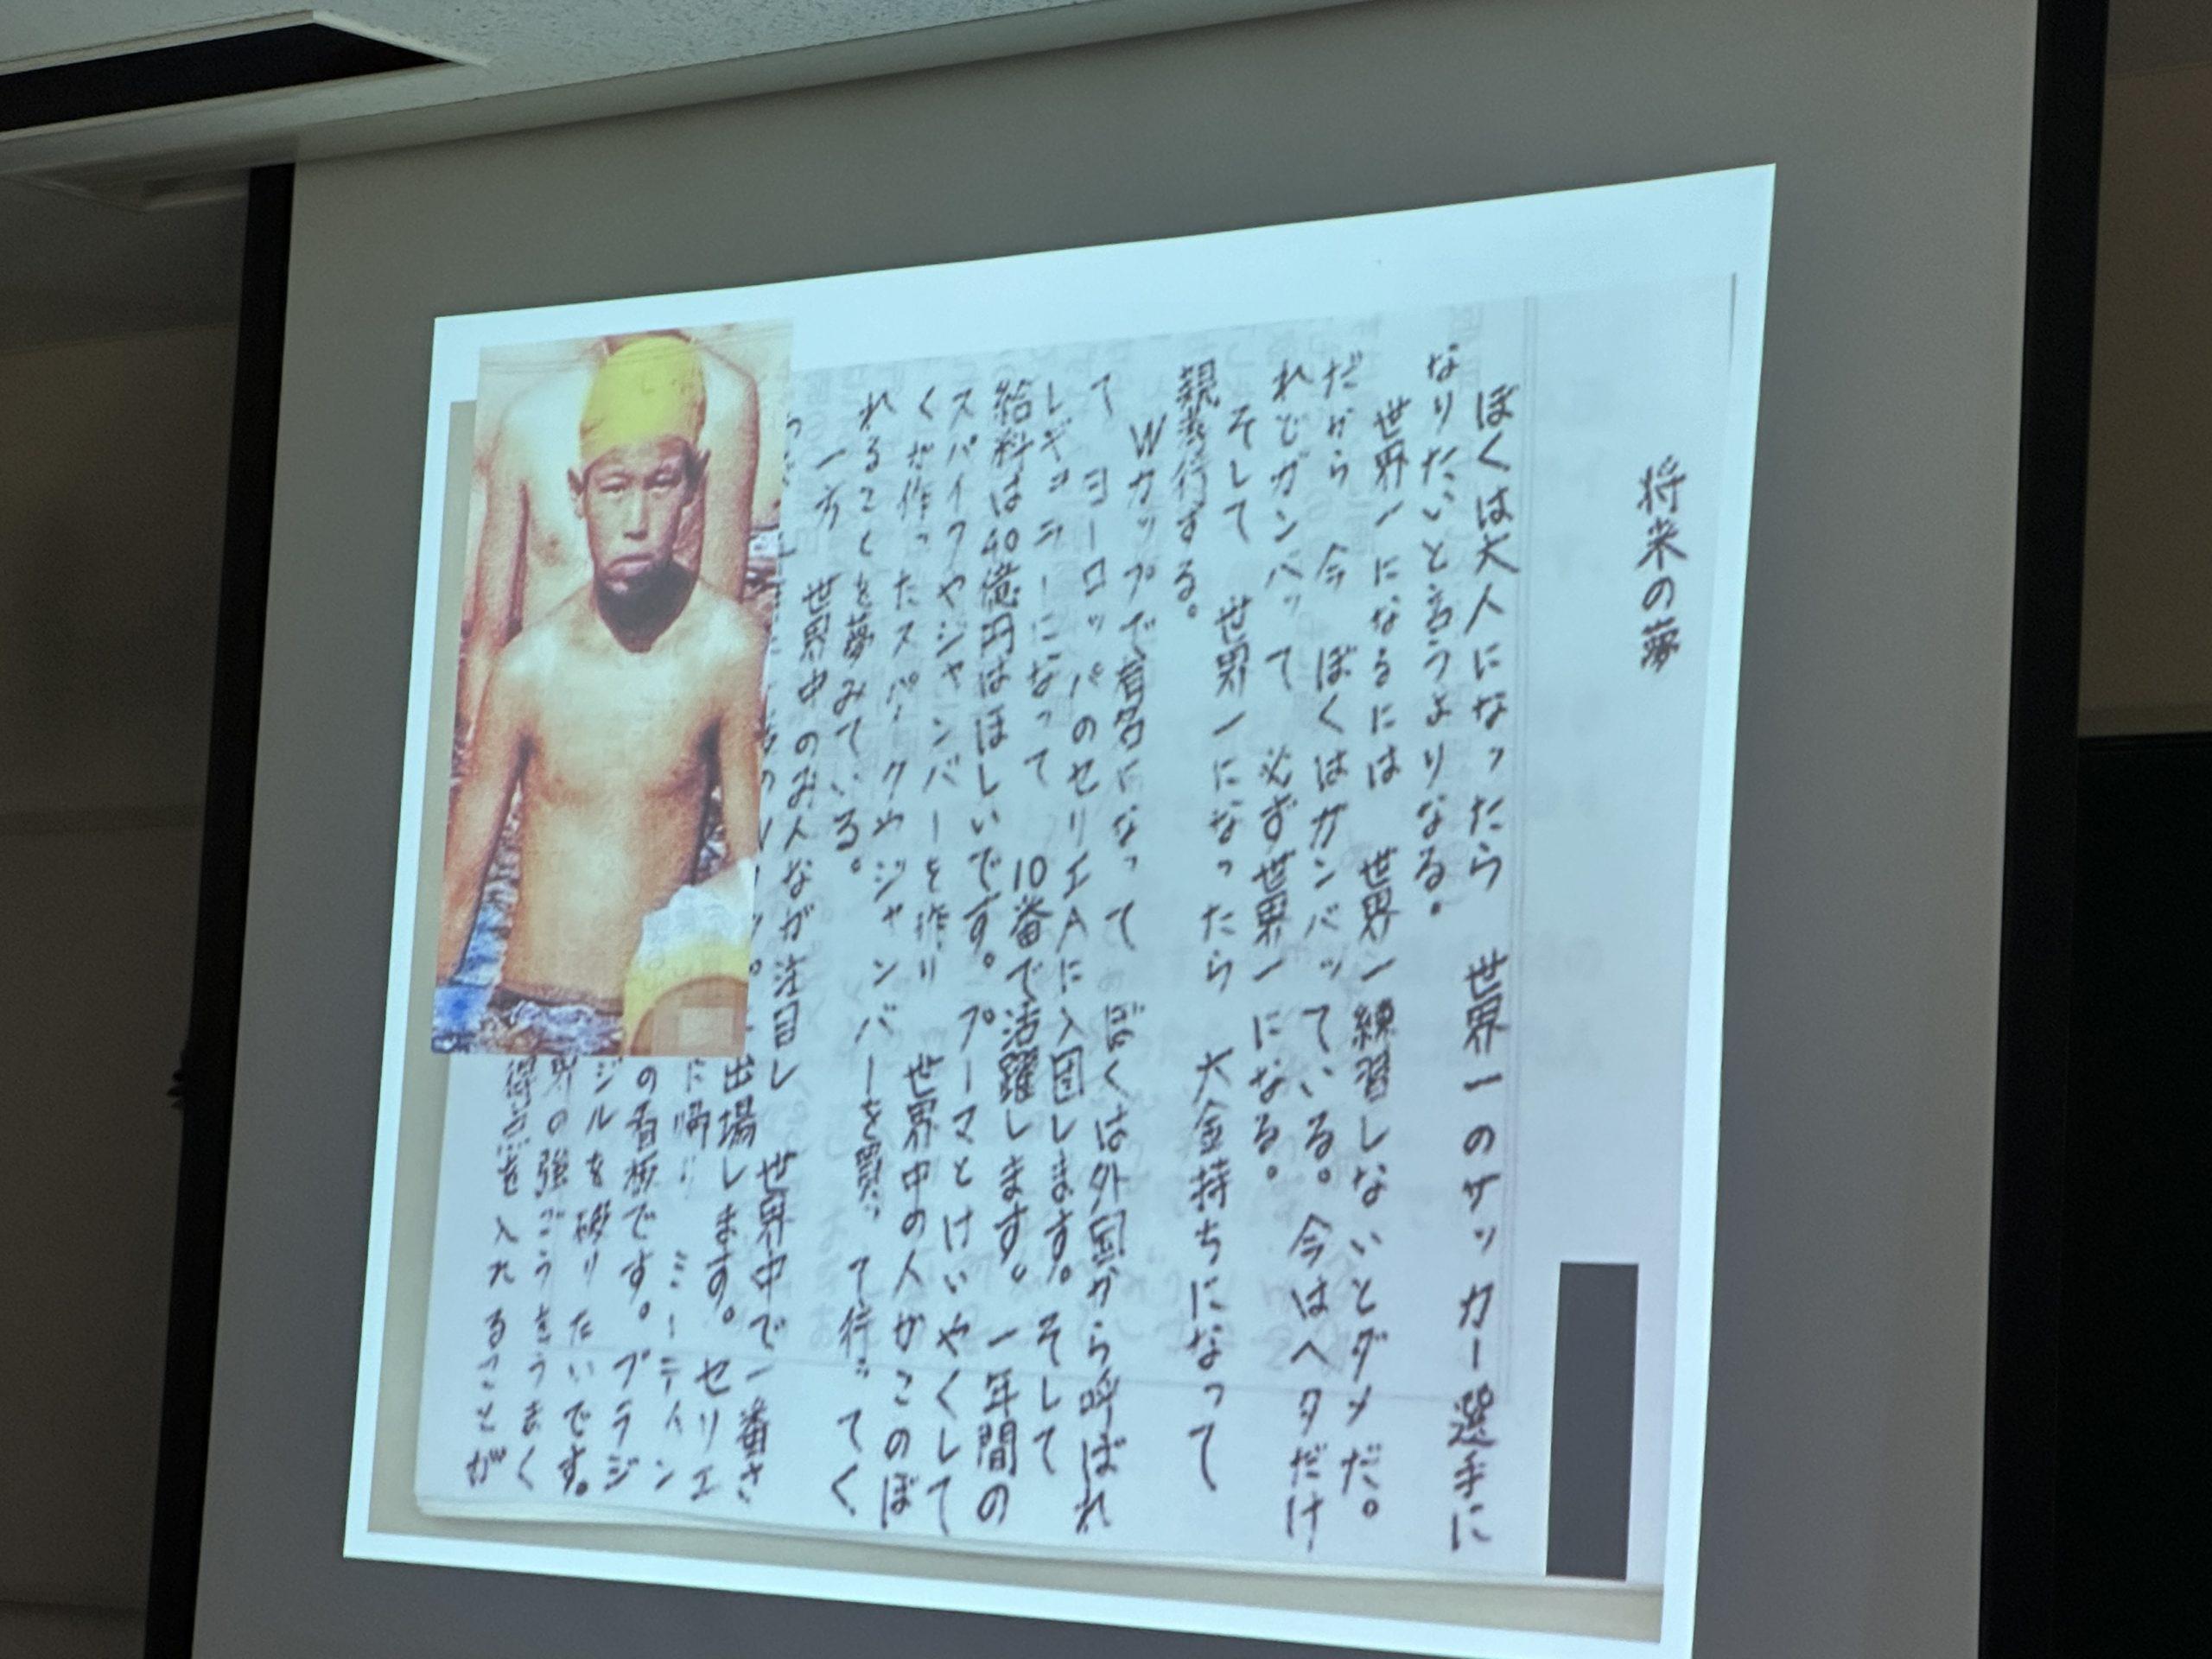 将来の夢
ぼくは大人になったら 世界一のサッカー選手に
なりたいと言うよりなる。
世界一になるには 世界一練習しないとダメだ。
だから 今 ぼくはガンバッている。今はヘタだけ
れどガンバッて 必ず世界一になる。
そして 世界一になったら 大金持ちになって
親孝行する。
Wカップで有名になって ぼくは外国から呼ばれ
て ヨーロッパのセリエAに入団します。そして
レギュラーになって 10番で活躍します。一年間の
給料は40億円はほしいです。プーマとけいやくして
スパイクやジャンバーを作り 世界中の人がこのぼ
くが作ったスパイクやジャンバーを買って行ってく
れることを夢みている。
一方 世界中のみんなが注目し 世界中で一番さ
出場します。セリエ
に帰り ミーティン
の看板です。ブラジ
ジルを破りたいです。
界の強ごうをうまく
得点を入れることが